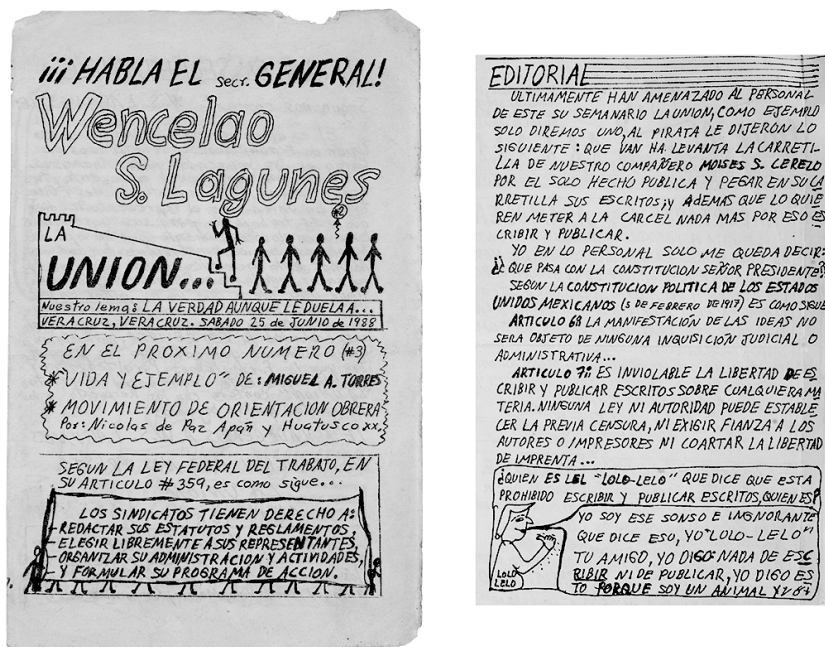 ¡¡¡HABLA EL Secr. GENERAL!
Wencelao
S. Lagunes
LA
UNION...
#2
Nuestro lema: LA VERDAD AUNQUE LE DUELA A...
VERACRUZ, VERACRUZ. SABADO 25 de JUNIO de 1988
EN EL PROXIMO NUMERO (#3)
* "VIDA Y EJEMPLO" DE: MIGUEL A. TORRES
* MOVIMIENTO DE ORIENTACION OBRERA
Por: Nicolas de Paz Apañ y Huatusco xx.
SEGUN LA LEY FEDERAL DEL TRABAJO, EN
SU ARTICULO #359, es como sigue...
LOS SINDICATOS TIENEN DERECHO A:
REDACTAR SUS ESTATUTOS Y REGLAMENTOS,
ELEGIR LIBREMENTE A SUS REPRESENTANTES,
ORGANIZAR SU ADMINISTRACION Y ACTIVIDADES,
Y FORMULAR SU PROGRAMA DE ACCION.
EDITORIAL
ULTIMAMENTE HAN AMENAZADO AL PERSONAL
DE ESTE SU SEMANARIO LA UNION, COMO EJEMPLO
SOLO DIREMOS UNO, AL PIRATA LE DIJERON LO
SIGUIENTE: QUE VAN HA LEVANTA LA CARRETI-
LLA DE NUESTRO COMPAÑERO MOISES S. CEREZO
POR EL SOLO HECHO PUBLICA Y PEGAR EN SU CA
RRETILLA SUS ESCRITOS; Y ADEMAS QUE LO QUIE
REN METER A LA CARCEL NADA MAS POR ESO ES
CRIBIR Y PUBLICAR.
YO EN LO PERSONAL SOLO ME QUEDA DECIR:
¿¡ QUE PASA CON LA CONSTITUCION SEÑOR PRESIDENTE?!
SEGUN LA CONSTITUCION POLITICA DE LOS ESTADOS
UNIDOS MEXICANOS (5 DE FEBRERO DE 1917) ES COMO SIGUE
ARTICULO 6º LA MANIFESTACIÓN DE LAS IDEAS NO
SERA OBJETO DE NINGUNA INQUISICIÓN JUDICIAL O
ADMINISTRATIVA...
ARTICULO 7º: ES INVIOLABLE LA LIBERTAD DE ES
CRIBIR Y PUBLICAR ESCRITOS SOBRE CUALQUIERA MA
TERIA. NINGUNA LEY NI AUTORIDAD PUEDE ESTABLE
CER LA PREVIA CENSURA, NI EXIGIR FIANZA A LOS
AUTORES O IMPRESORES NI COARTAR LA LIBERTAD
DE IMPRENTA...
¿QUIEN ES LEL "LOLO-LELO" QUE DICE QUE ESTA
PROHIBIDO ESCRIBIR Y PUBLICAR ESCRITOS, QUIEN ES?
YO SOY ESE SONSO E IMGNORANTE
QUE DICE ESO, YO "LOLO-LELO"
TU AMIGO, YO DIGO NADA DE ESC
RIBIR NI DE PUBLICAR, YO DIGO ES
TO PORQUE SOY UN ANIMAL
LOLO
LELO